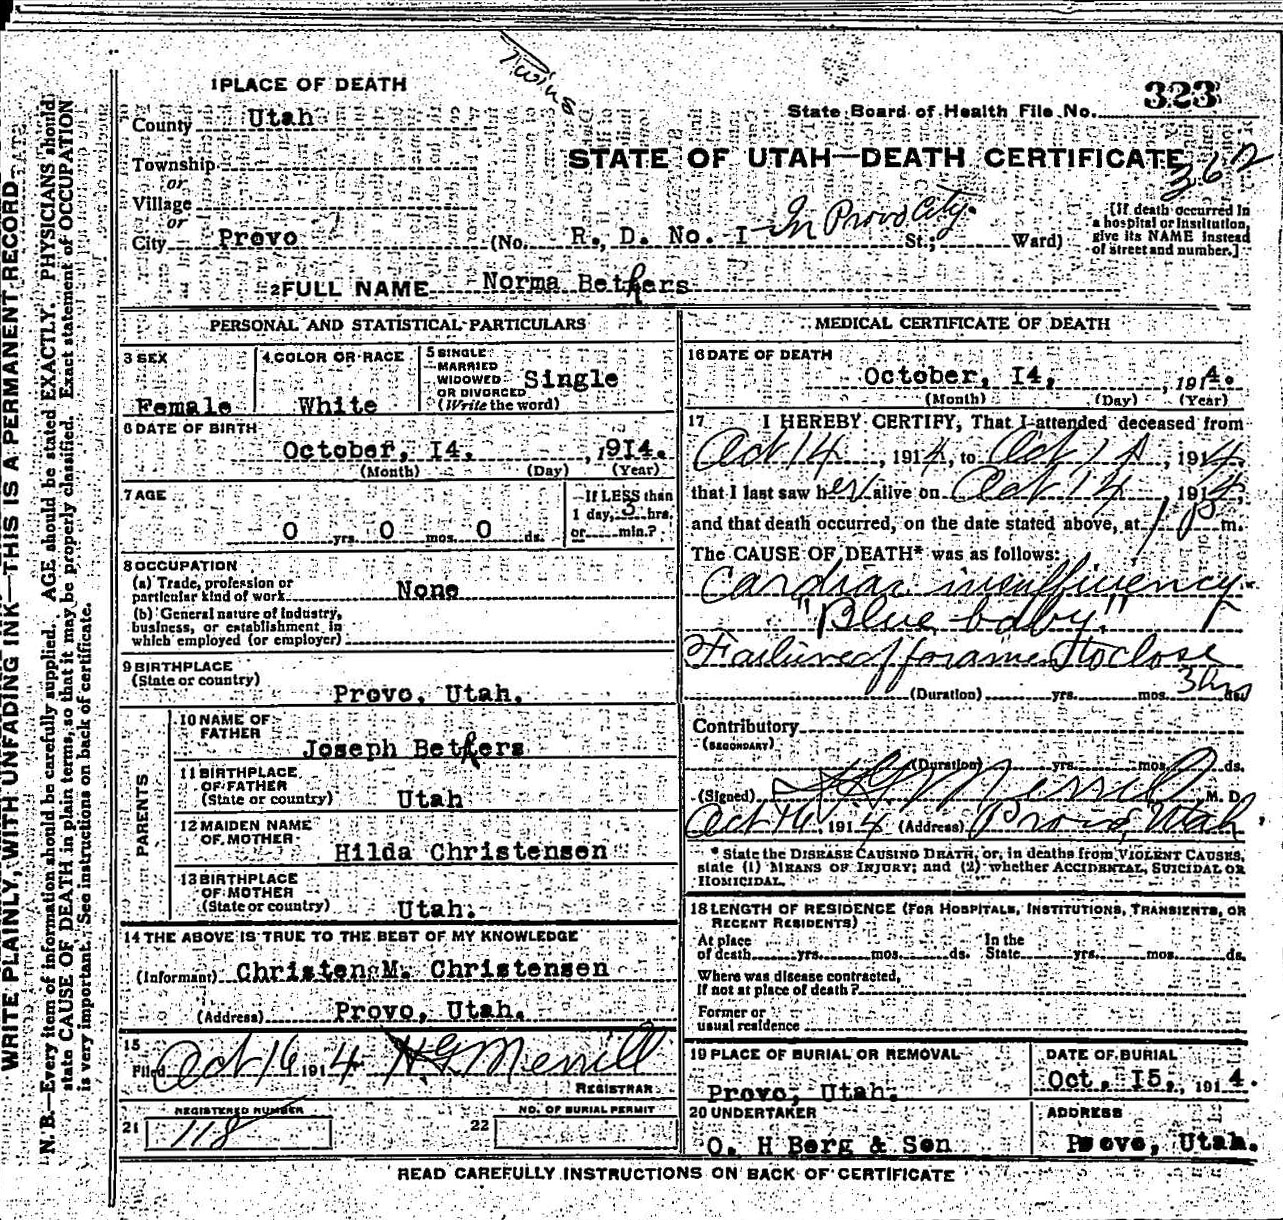 Twins
1 PLACE OF DEATH
323
State Board of Health File No.
County Utah
STATE OF UTAH—DEATH CERTIFICATE
362
Township
or
Village
or
City Provo (No. R. D. No. I In Provo City. St.; Ward)
[If death occurred in
a hospital or institution,
give its NAME instead
of street and number.]
2 FULL NAME Norma Bethers
PERSONAL AND STATISTICAL PARTICULARS
3 SEX
Female
4 COLOR OR RACE
White
5 SINGLE
MARRIED
WIDOWED
OR DIVORCED
(Write the word)
Single
6 DATE OF BIRTH
October, I4, , 19I4.
(Month) (Day) (Year)
7 AGE
0 yrs. 0 mos. 0 ds.
If LESS than
1 day, 3 hrs.
or min.?
8 OCCUPATION
(a) Trade, profession or
particular kind of work None
(b) General nature of industry,
business, or establishment in
which employed (or employer)
9 BIRTHPLACE
(State or country)
Provo, Utah.
PARENTS
10 NAME OF
FATHER
Joseph Bethers
11 BIRTHPLACE
OF FATHER
(State or country) Utah
12 MAIDEN NAME
OF MOTHER
Hilda Christensen
13 BIRTHPLACE
OF MOTHER
(State or country) Utah.
14 THE ABOVE IS TRUE TO THE BEST OF MY KNOWLEDGE
(Informant) Christen M. Christensen
(Address) Provo, Utah.
15
Filed Oct 16 1914 H G Merrill
REGISTRAR
REGISTERED NUMBER
21 118
NO. OF BURIAL PERMIT
22
MEDICAL CERTIFICATE OF DEATH
16 DATE OF DEATH
October, I4, , 1914.
(Month) (Day) (Year)
17 I HEREBY CERTIFY, That I attended deceased from
Oct 14, 1914, to Oct 14, 1914,
that I last saw her alive on Oct 14, 1914,
and that death occurred, on the date stated above, at 1 P m.
The CAUSE OF DEATH* was as follows:
Cardiac insufficiency
"Blue baby."
Failure of foramen to close
(Duration) yrs. mos. 3 hrs ds.
Contributory
(SECONDARY)
(Duration) yrs. mos. ds.
(Signed) H G Merrill M. D.
Oct 16, 1914 (Address) Provo, Utah,
* State the DISEASE CAUSING DEATH, or, in deaths from VIOLENT CAUSES,
state (1) MEANS OF INJURY; and (2) whether ACCIDENTAL, SUICIDAL OR
HOMICIDAL.
18 LENGTH OF RESIDENCE (FOR HOSPITALS, INSTITUTIONS, TRANSIENTS, OR
RECENT RESIDENTS)
At place
of death yrs. mos. ds.
In the
State yrs. mos. ds.
Where was disease contracted,
If not at place of death?
Former or
usual residence
19 PLACE OF BURIAL OR REMOVAL
Provo, Utah.
DATE OF BURIAL
Oct. I5, 1914.
20 UNDERTAKER
O. H Berg & Son
ADDRESS
Provo, Utah.
READ CAREFULLY INSTRUCTIONS ON BACK OF CERTIFICATE
WRITE PLAINLY, WITH UNFADING INK—THIS IS A PERMANENT RECORD
N. B.—Every item of information should be carefully supplied. AGE should be stated EXACTLY. PHYSICIANS should
state CAUSE OF DEATH in plain terms, so that it may be properly classified. Exact statement of OCCUPATION
is very important. See instructions on back of certificate.